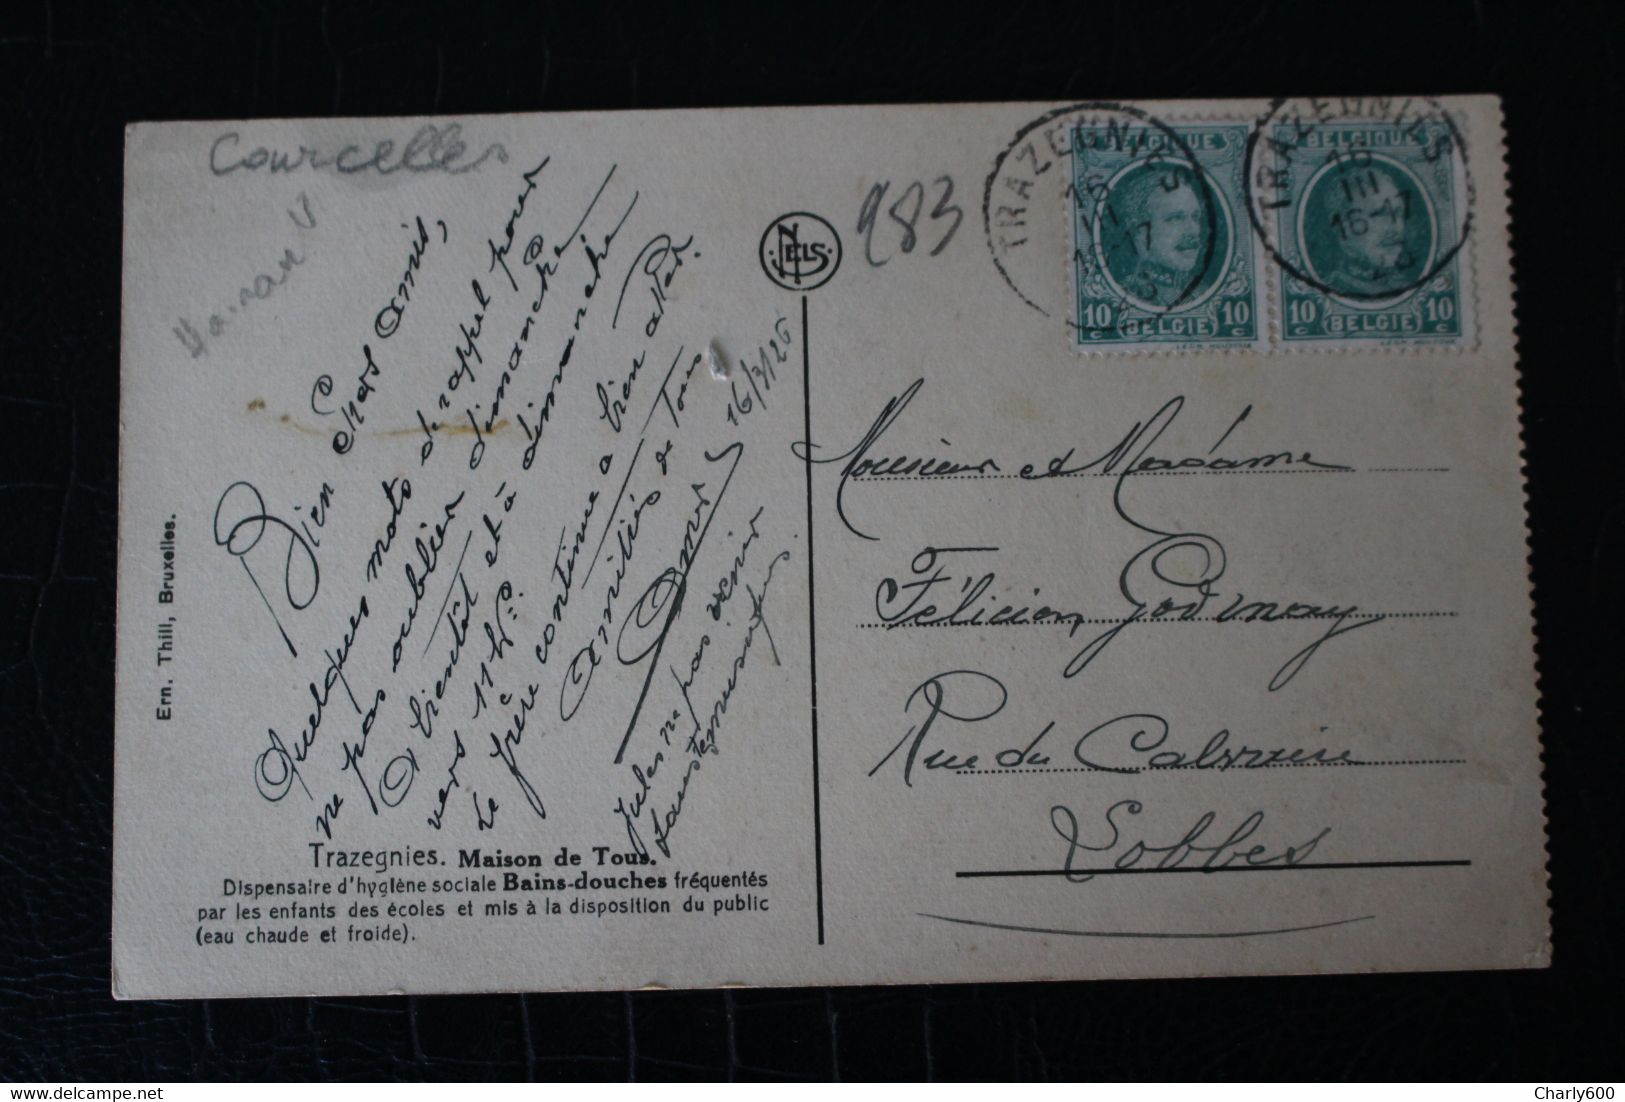 Courcelles
Hainaut
Bien chers amis,
Quelques mots de rappel pour
ne pas oublier dimanche
A bientôt et à dimanche
vers 11 h
Le frère continue à bien aller.
Amitiés de Tous
Omer
16/3/26
Jules ne pas venir
Trazegnies. Maison de Tous.
Dispensaire d'hygiène sociale Bains-douches fréquentés
par les enfants des écoles et mis à la disposition du public
(eau chaude et froide).
Ern. Thill, Bruxelles.
NELS
283
TRAZEGNIES
16
III
16-17
BELGIQUE
10 c BELGIE 10 c
TRAZEGNIES
16
III
16-17
BELGIQUE
10 c BELGIE 10 c
Monsieur et Madame
Félicien Godimay
Rue du Calvaire
Lobbes
Charly600